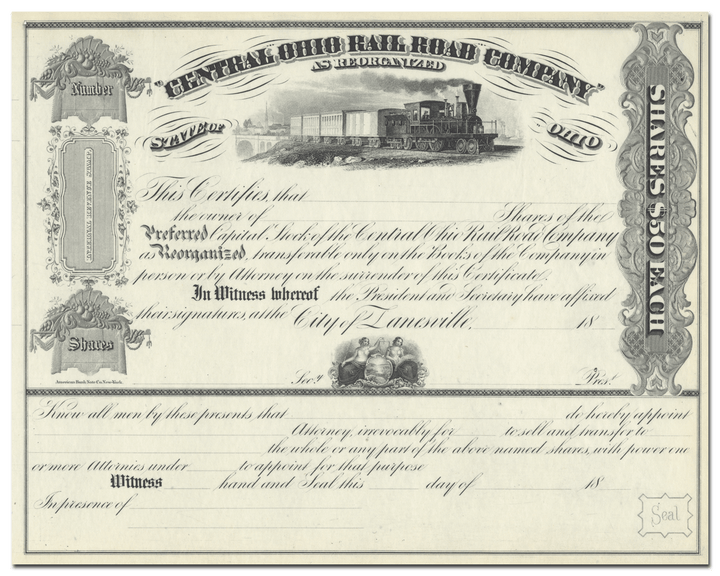 "CENTRAL OHIO RAIL ROAD COMPANY"
AS REORGANIZED
Number
STATE OF OHIO
SHARES $50 EACH
This Certifies, that
the owner of Shares of the
Preferred Capital Stock of the Central Ohio Rail Road Company
as Reorganized, transferable only on the Books of the Company in
person or by Attorney on the surrender of this Certificate.
In Witness whereof the President and Secretary have affixed
their signatures, at the City of Zanesville, 18
Shares
American Bank Note Co. New York.
Secy. Prest.
Know all men by these presents that do hereby appoint
Attorney, irrevocably for to sell and transfer to
the whole or any part of the above named shares, with power one
or more Attornies under to appoint for that purpose
Witness hand and Seal this day of 18
In presence of
Seal